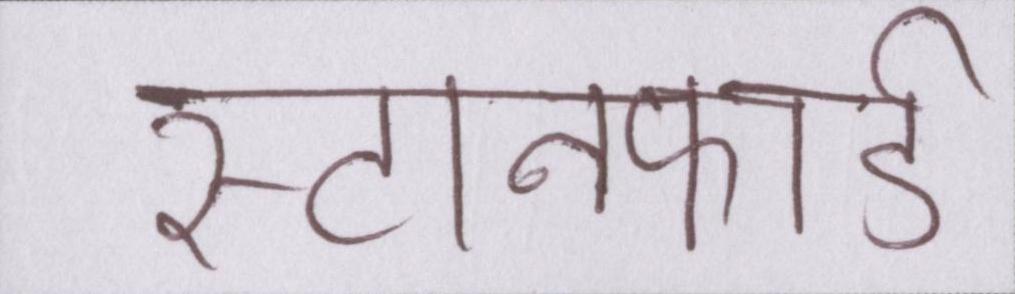 स्टानफार्ड